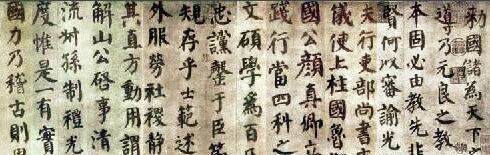 勑國儲為天下
導乃元良之教
本固必由教先非
賢何以審諭光
夫行吏部尚書
儀使上柱國魯
國公顏真卿立
踐行當四科之
文碩學為百氏
忠讜罄于臣節
規存乎士範述
外服勞社稷靜
其直方動用謂
解山公啓事清
流叔孫制禮光
度惟是一有實
國力乃稽古則思